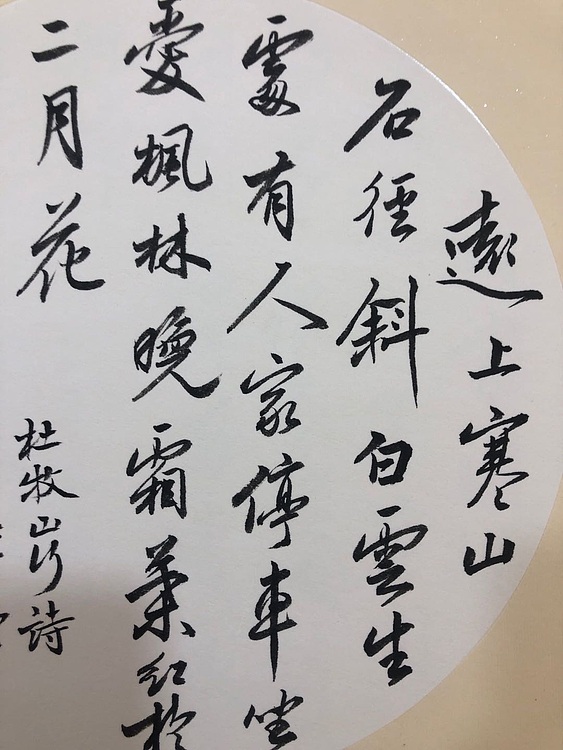 遠上寒山
石徑斜白雲生
處有人家停車坐
愛楓林晚霜葉紅於
二月花
杜牧山行詩